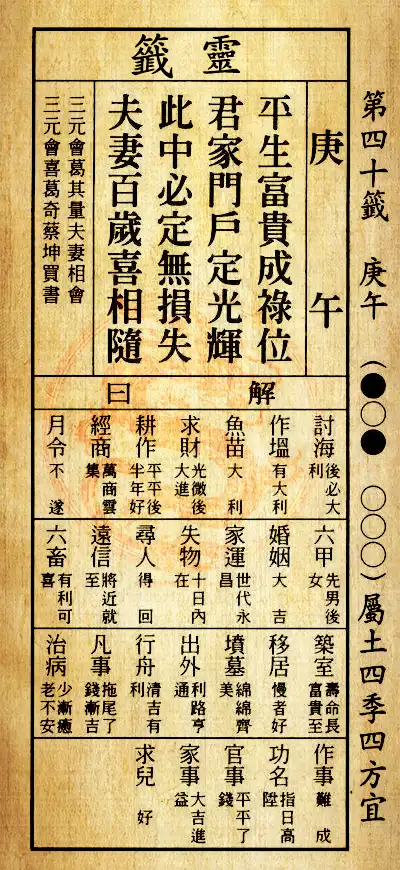 第四十籤 庚午 (●○● ○○○)屬土四季四方宜
靈籤
庚午
平生富貴成祿位
君家門戶定光輝
此中必定無損失
夫妻百歲喜相隨
三元會葛其量夫妻相會
三元會喜葛奇蔡坤買書
解曰
討海 後必大利
作塭 有大利
魚苗 大利
求財 光微後大進
耕作 平平後半年好
經商 萬商雲集
月令 不遂
六甲 先男後女
婚姻 大吉
家運 世代永昌
失物 十日內在
尋人 得回
遠信 將近就至
六畜 有利可喜
築室 壽命長富貴至
移居 慢者好
墳墓 綿綿齊美
出外 利路亨通
行舟 清吉有利
凡事 拖尾了錢漸吉
治病 少漸癒老不安
作事 難成
功名 指日高陞
官事 平平了錢
家事 大吉進益
求兒 好